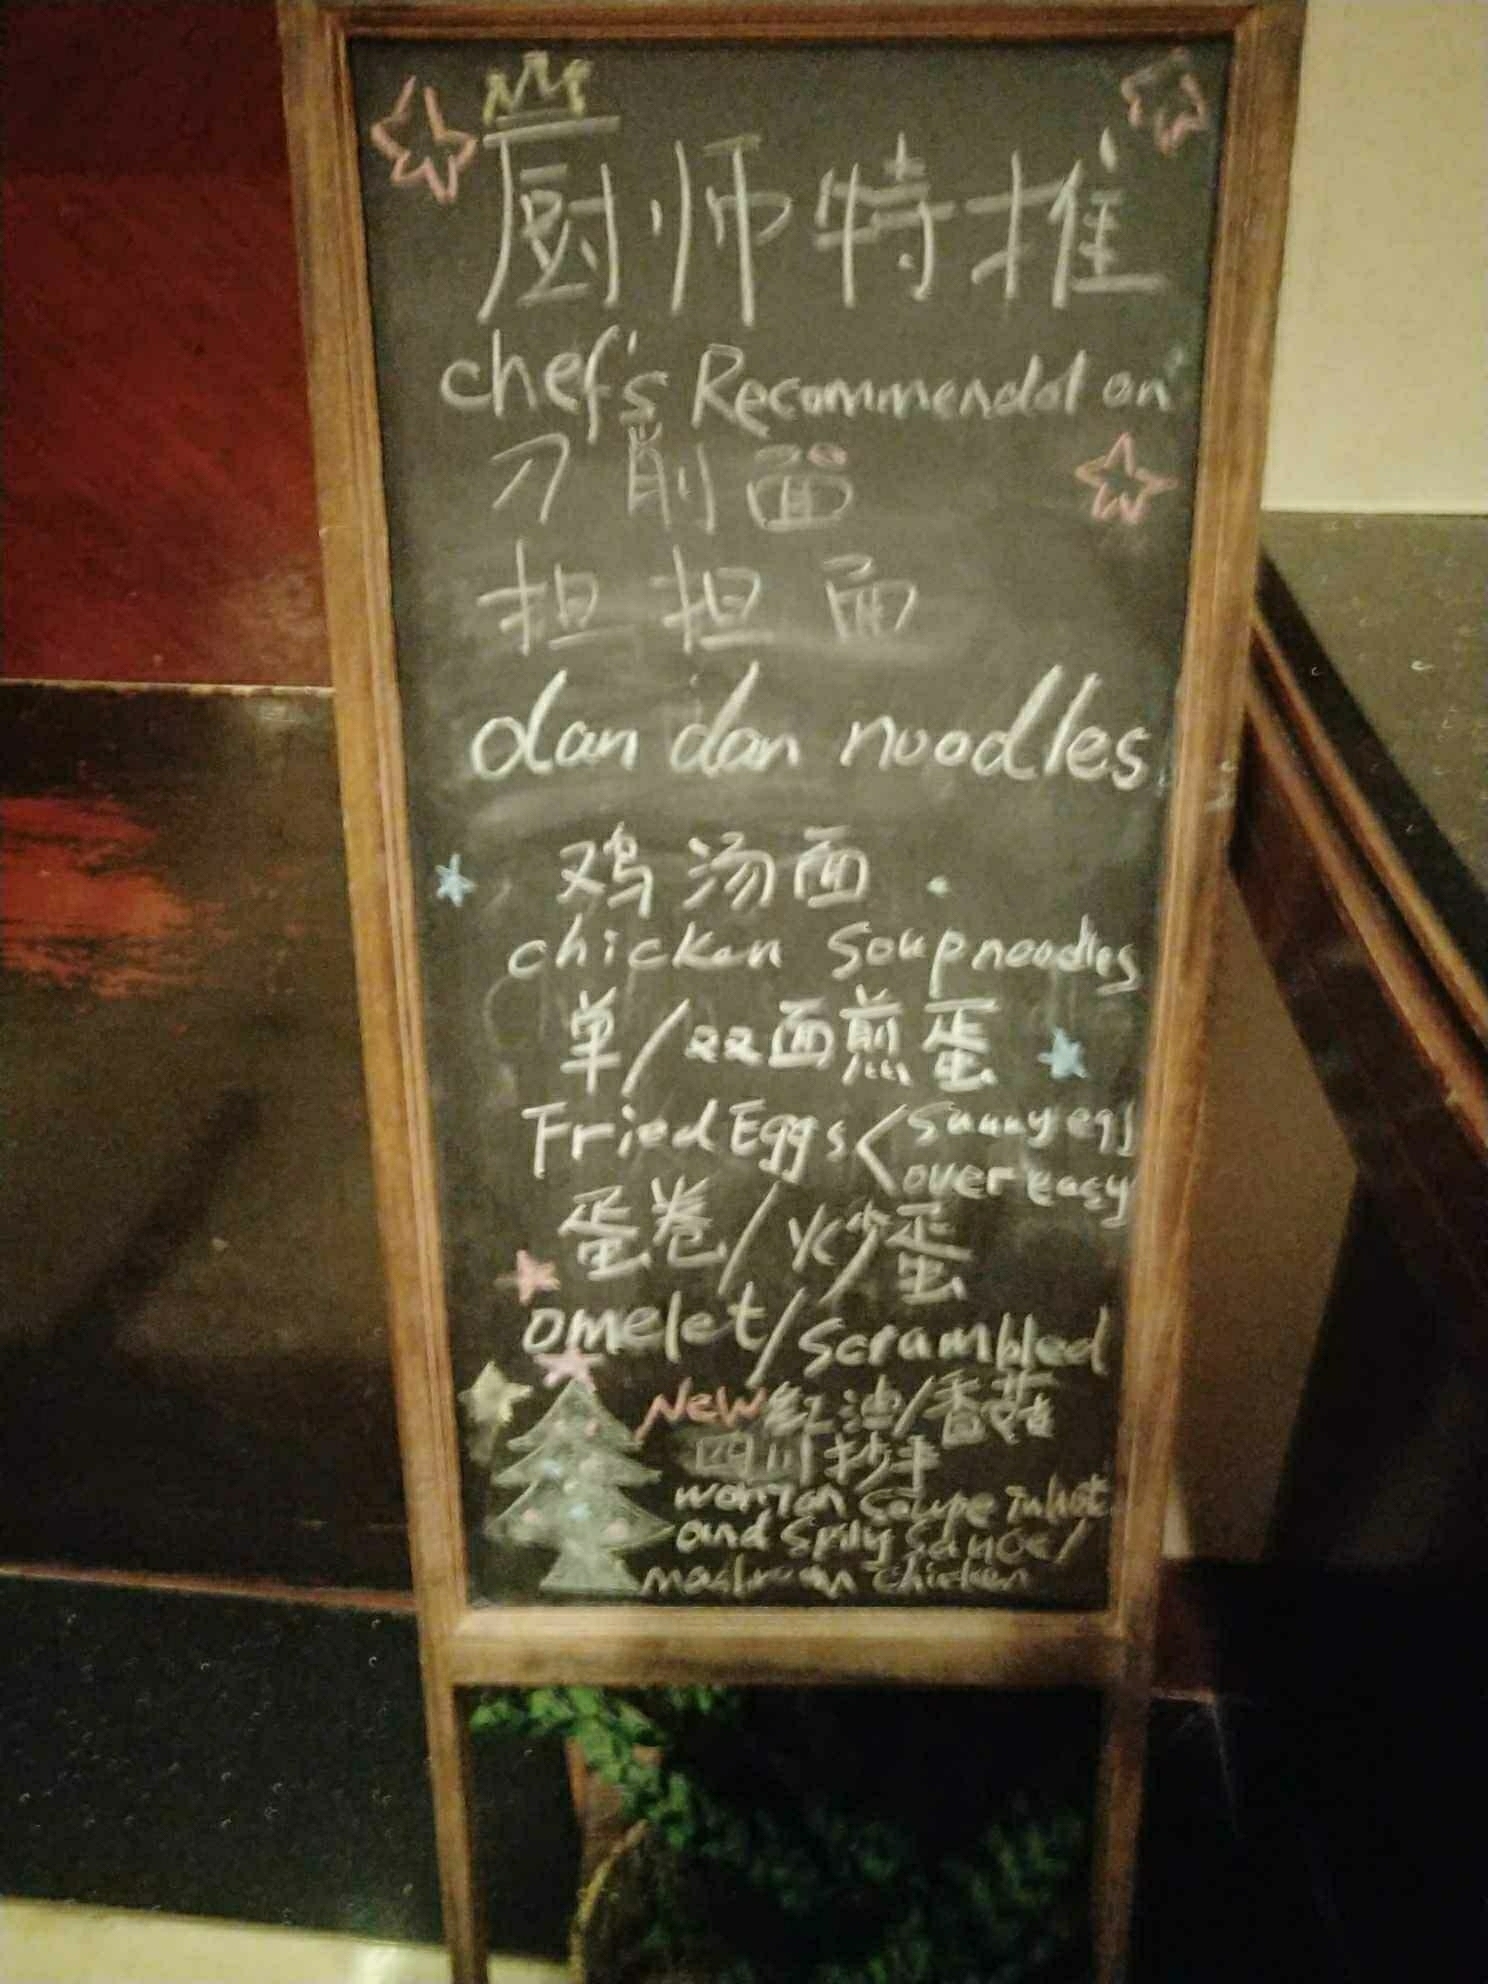 厨师特推
chef's Recommendation
刀削面
担担面
dan dan noodles
鸡汤面
chicken Soup noodles
单/双面煎蛋
Fried Eggs < Sunny egg
over easy
蛋卷/炒蛋
omelet/scrambled
New 红油/香菇
四川抄手
wonton Soupe in hot
and
mashroom chicken